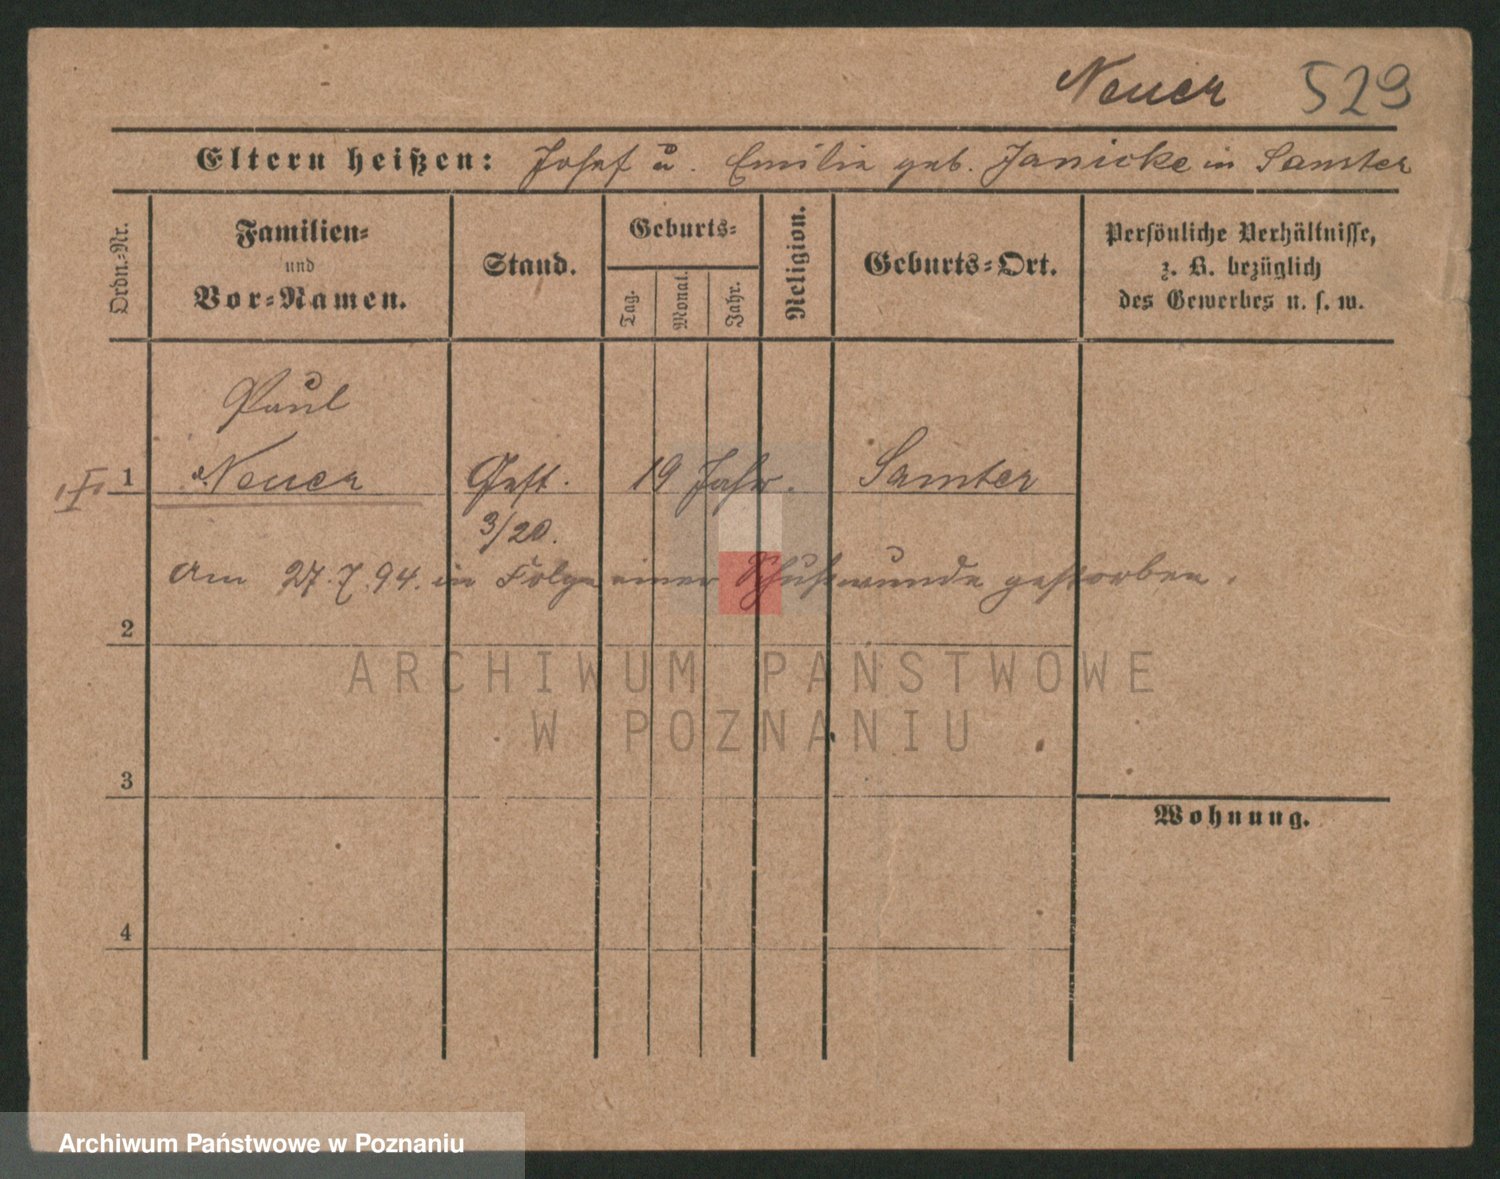 Neuer 529
Eltern heißen: Josef u. Emilie geb. Janicke in Samter
Ordn.-Nr.
Familien-
und
Vor-Namen.
Stand.
Geburts-
Tag.
Monat.
Jahr.
Religion.
Geburts-Ort.
Persönliche Verhältnisse,
z. B. bezüglich
des Gewerbes u. s. w.
Paul
1 Neuer 19 Jahr. Samter
3/20.
Am 27.7.94. in Folge einer Schußwunde gestorben.
2
3
4
Wohnung.
ARCHIWUM PAŃSTWOWE
W POZNANIU
Archiwum Państwowe w Poznaniu